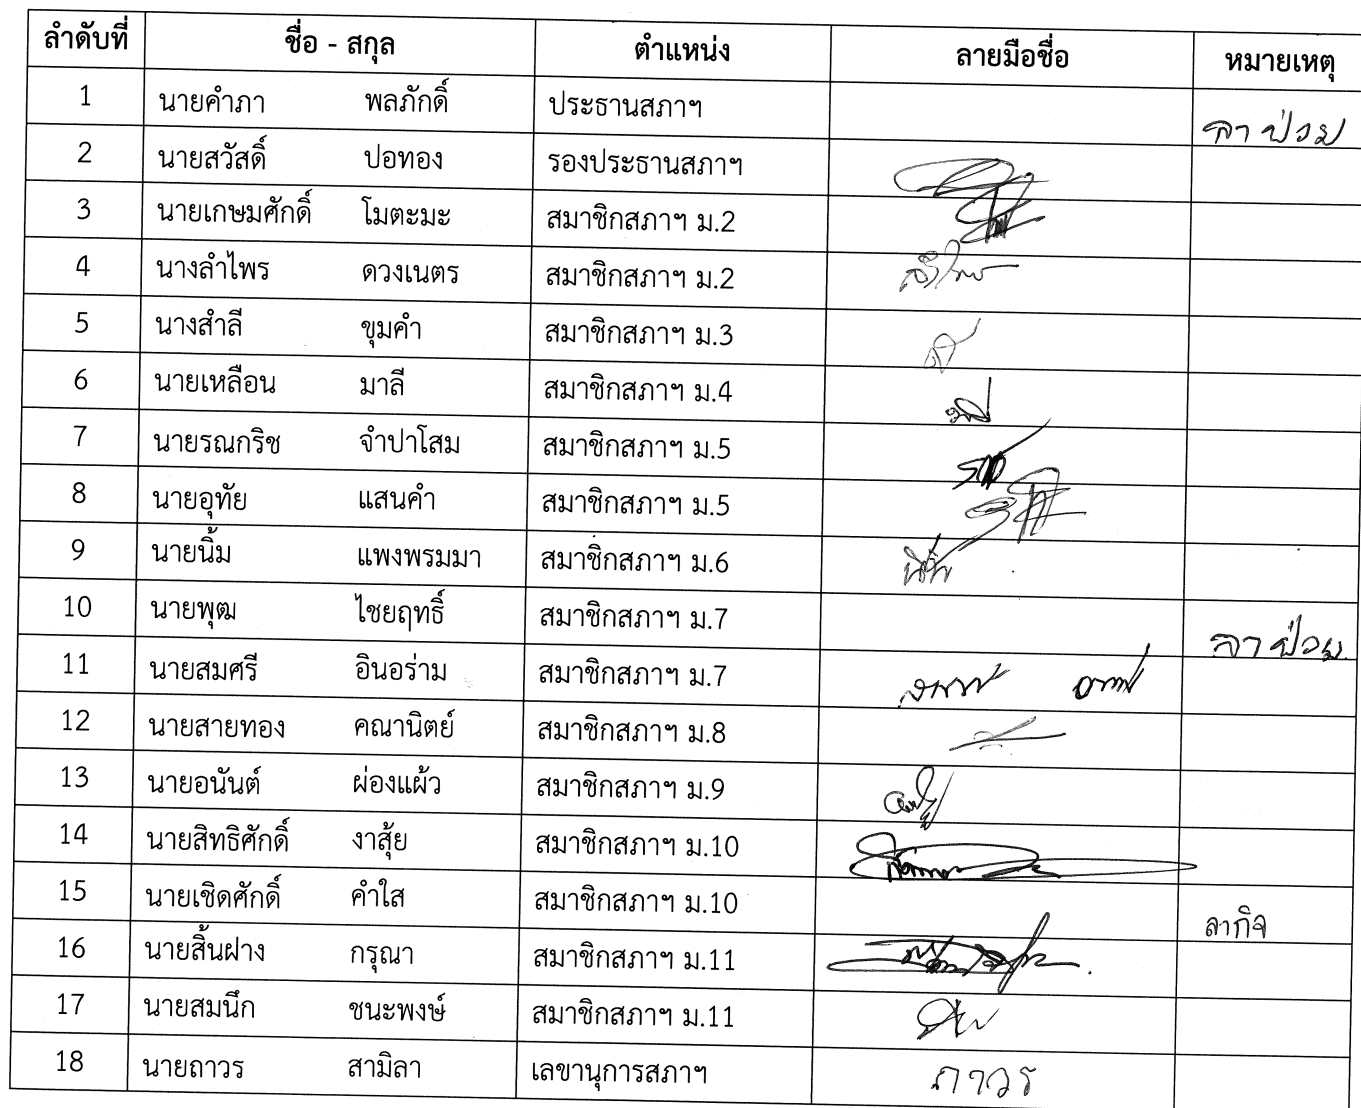 ลำดับที่ ชื่อ - สกุล ตำแหน่ง ลายมือชื่อ หมายเหตุ
1 นายคำภา พลภักดิ์ ประธานสภาฯ ลาป่วย
2 นายสวัสดิ์ ปอทอง รองประธานสภาฯ
3 นายเกษมศักดิ์ โมตะมะ สมาชิกสภาฯ ม.2
4 นางลำไพร ดวงเนตร สมาชิกสภาฯ ม.2 ลำไพร
5 นางสำลี ขุมคำ สมาชิกสภาฯ ม.3
6 นายเหลือน มาลี สมาชิกสภาฯ ม.4
7 นายรณกริช จำปาโสม สมาชิกสภาฯ ม.5
8 นายอุทัย แสนคำ สมาชิกสภาฯ ม.5
9 นายนิ้ม แพงพรมมา สมาชิกสภาฯ ม.6
10 นายพุฒ ไชยฤทธิ์ สมาชิกสภาฯ ม.7 ลาป่วย
11 นายสมศรี อินอร่าม สมาชิกสภาฯ ม.7
12 นายสายทอง คณานิตย์ สมาชิกสภาฯ ม.8
13 นายอนันต์ ผ่องแผ้ว สมาชิกสภาฯ ม.9
14 นายสิทธิศักดิ์ งาสุ้ย สมาชิกสภาฯ ม.10
15 นายเชิดศักดิ์ คำใส สมาชิกสภาฯ ม.10 ลากิจ
16 นายสิ้นฝาง กรุณา สมาชิกสภาฯ ม.11
17 นายสมนึก ชนะพงษ์ สมาชิกสภาฯ ม.11
18 นายถาวร สามิลา เลขานุการสภาฯ ถาวร